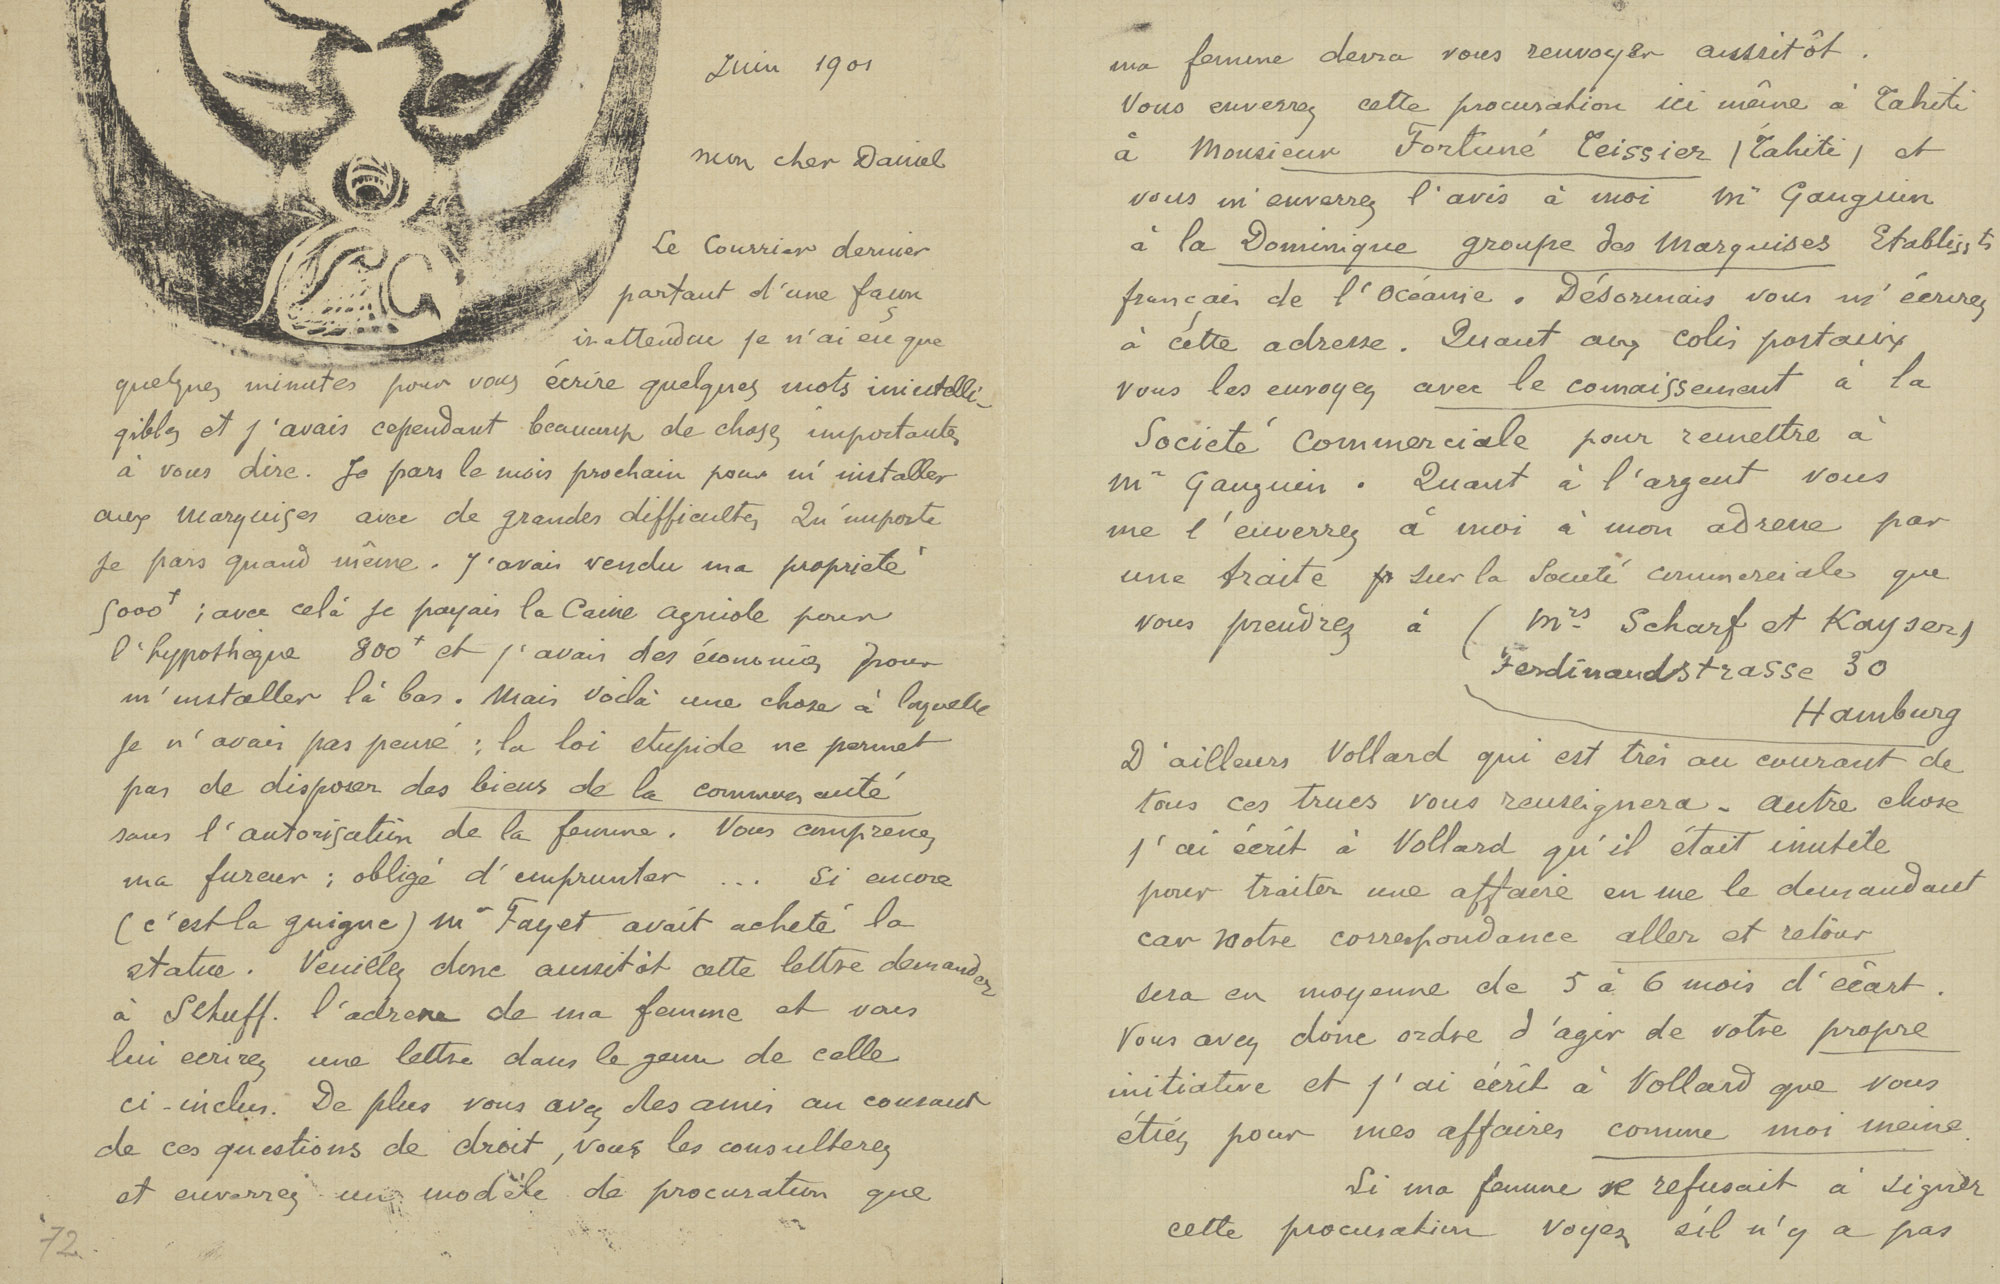 Juin 1901
mon cher Daniel
Le Courrier dernier
partant d'une façon
inattendue je n'ai eu que
quelques minutes pour vous écrire quelques mots inintelli-
gibles et j'avais cependant beaucoup de choses importantes
à vous dire. Je pars le mois prochain pour m'installer
aux Marquises avec de grandes difficultés Qu'importe
je pars quand même. J'avais vendu ma propriété
5000f ; avec celà je payais la Caisse agricole pour
l'hypothèque 800f et j'avais des économies pour
m'installer là bas. Mais voilà une chose à laquelle
je n'avais pas pensé : la loi stupide ne permet
pas de disposer des biens de la communauté
sans l'autorisation de la femme. Vous comprenez
ma fureur ; obligé d'emprunter ... Si encore
(c'est la guigne) Mr Fayet avait acheté la
statue. Veuillez donc aussitôt cette lettre demander
à Schuff. l'adresse de ma femme et vous
lui ecrirez une lettre dans le genre de celle
ci-inclus. De plus vous avez des amis au courant
de ces questions de droit, vous les consulterez
et enverrez un modèle de procuration que
72
ma femme devra vous renvoyer aussitôt.
Vous enverrez cette procuration ici même à Tahiti
à Monsieur Fortuné Teissier (Tahiti) et
vous m'enverrez l'avis à moi Mr Gauguin
à la Dominique groupe des Marquises Etablissts
français de l'Océanie. Désormais vous m'écrirez
à cette adresse. Quant aux colis postaux
vous les envoyez avec le connaissement à la
Société Commerciale pour remettre à
Mr Gauguin. Quant à l'argent vous
me l'enverrez à moi à mon adresse par
une traite sur la Société commerciale que
vous prendrez à (Mrs Scharf et Kayser)
Ferdinandstrasse 30
Hamburg
D'ailleurs Vollard qui est très au courant de
tous ces trucs vous renseignera - autre chose
j'ai écrit à Vollard qu'il était inutile
pour traiter une affaire en me le demandant
car notre correspondance aller et retour
sera en moyenne de 5 à 6 mois d'écart.
Vous avez donc ordre d'agir de votre propre
initiative et j'ai écrit à Vollard que vous
étiez pour mes affaires comme moi même.
Si ma femme se refusait à signer
cette procuration voyez s'il n'y a pas